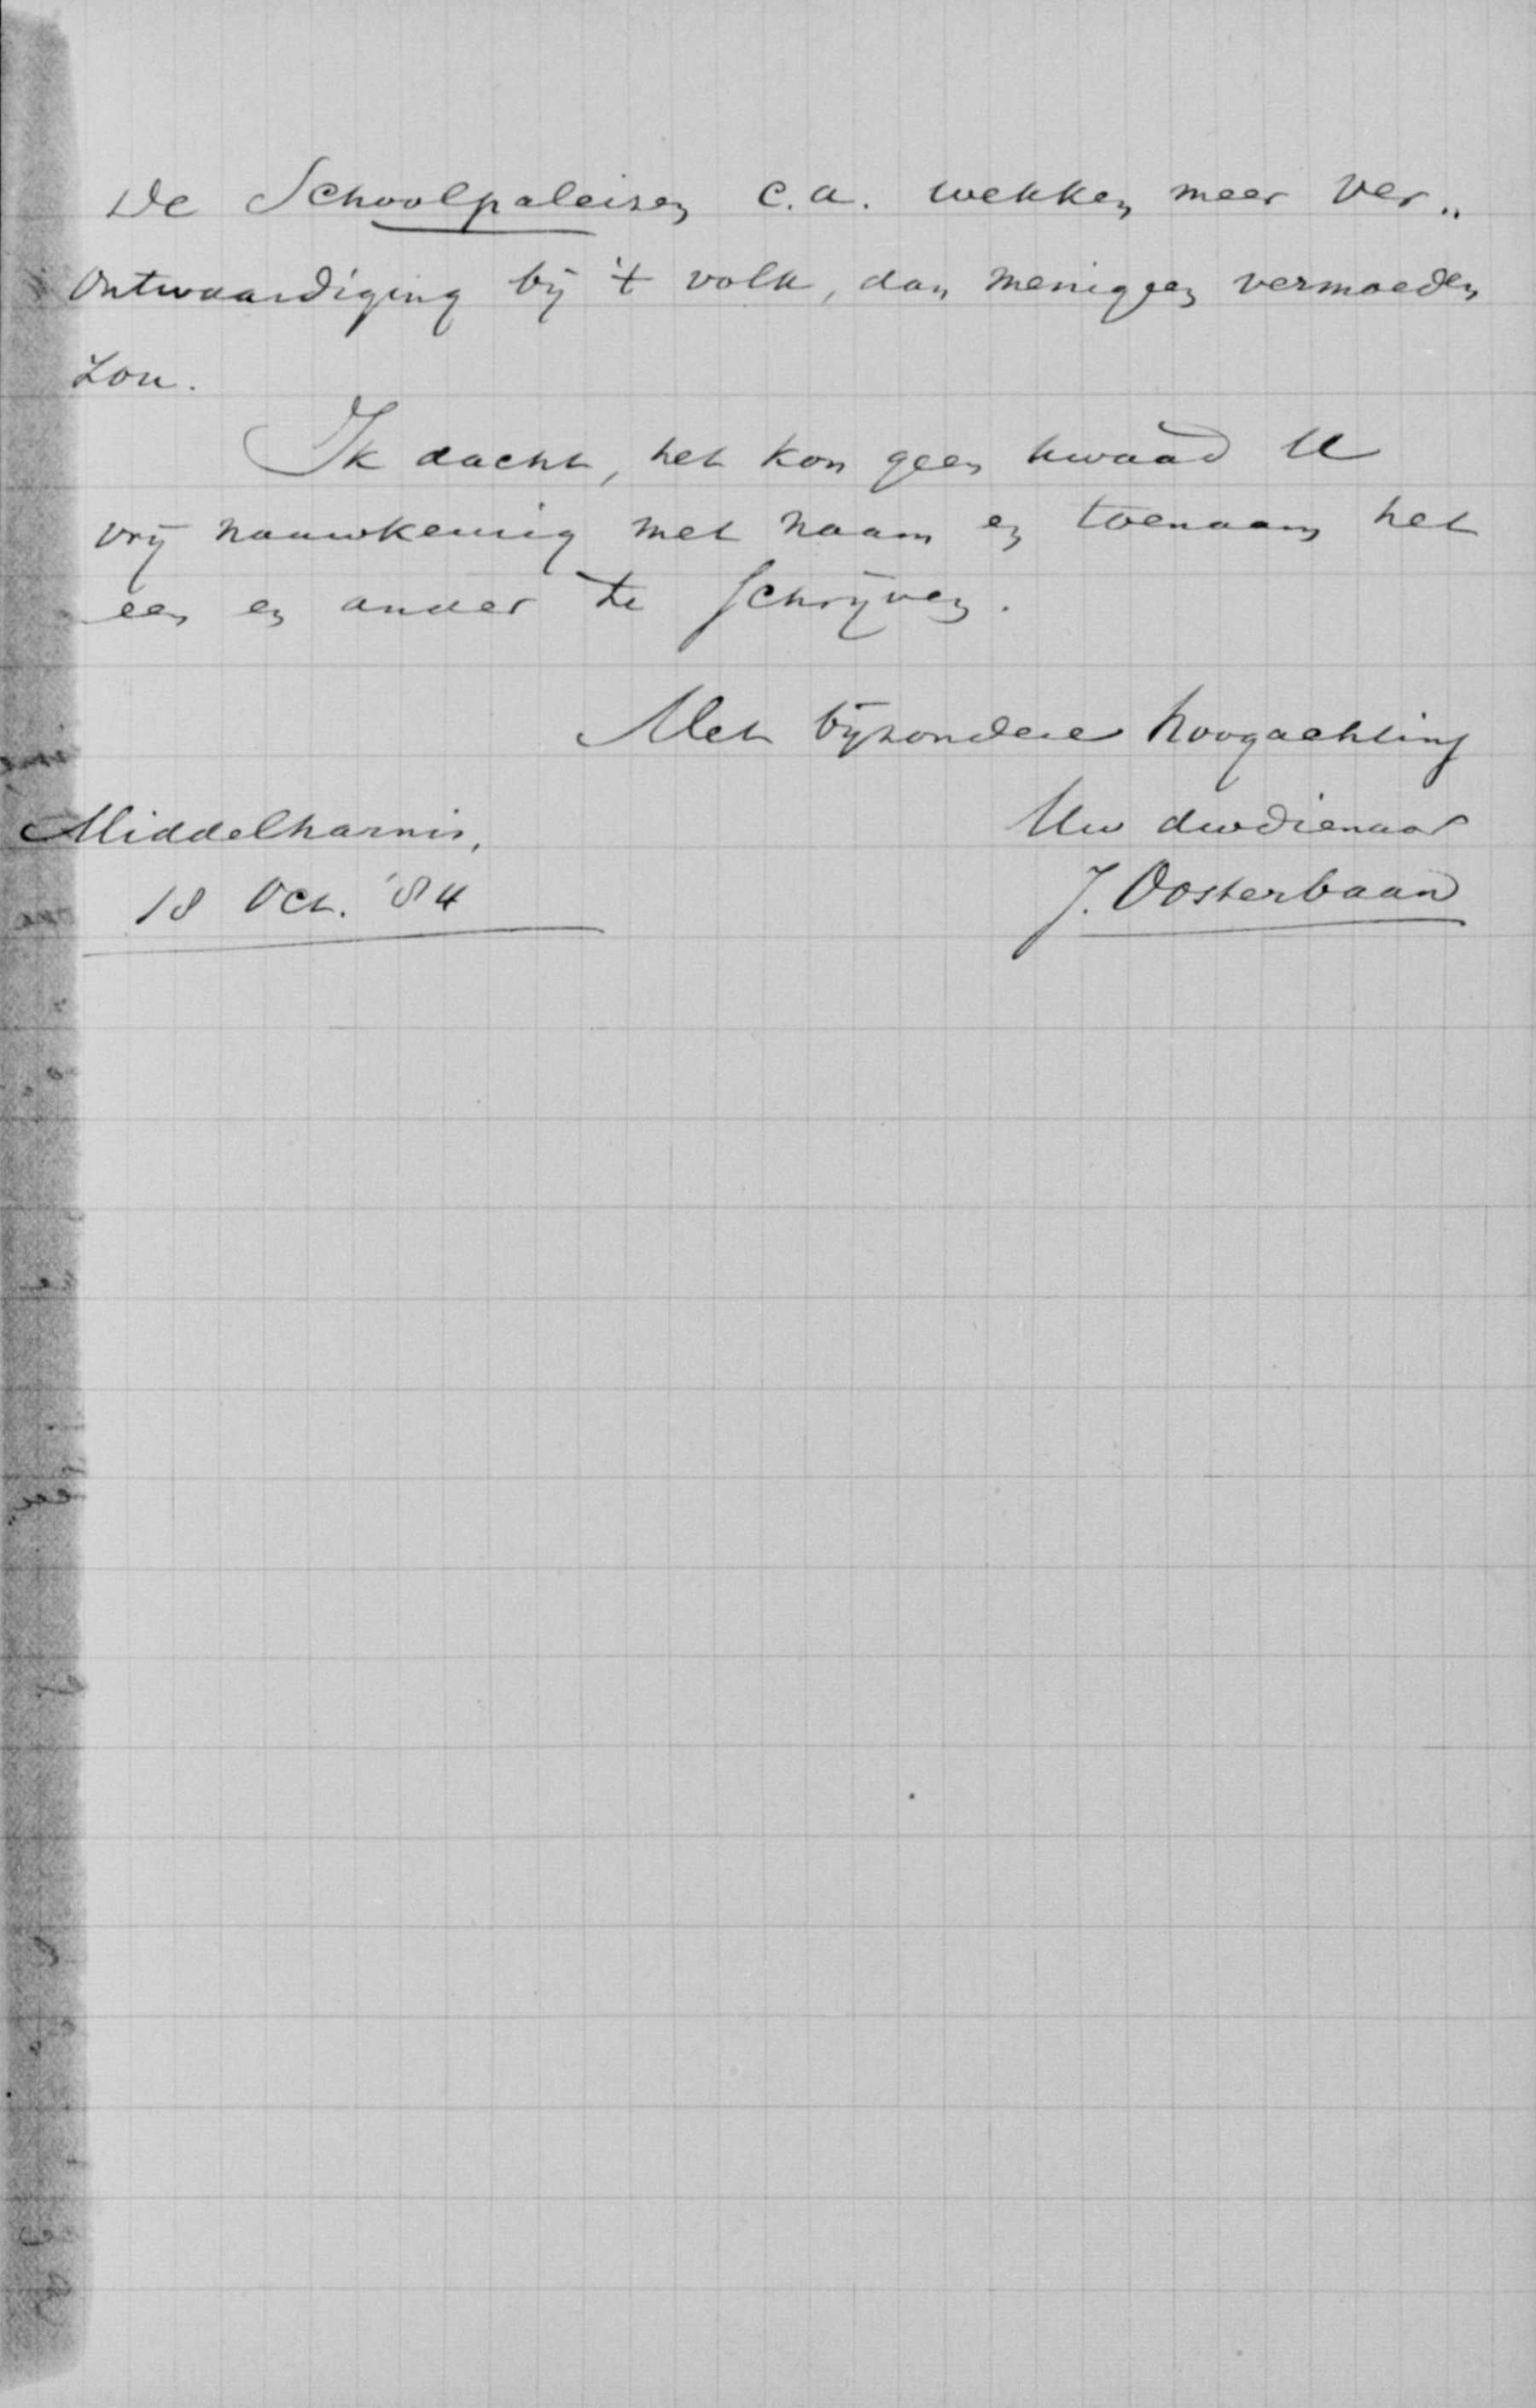 De Schoolpaleisen c.a. wekken meer ver„
ontwaardiging bij 't volk, dan menigeen vermoeden
zou.
Ik dacht, het kon geen kwaad U
vrij nauwkeurig met naam en toenaam het
een en ander te schrijven.
Met bijzondere hoogachting
Uw dwdienaar
J. Oosterbaan
Middelharnis,
18 Oct. '84